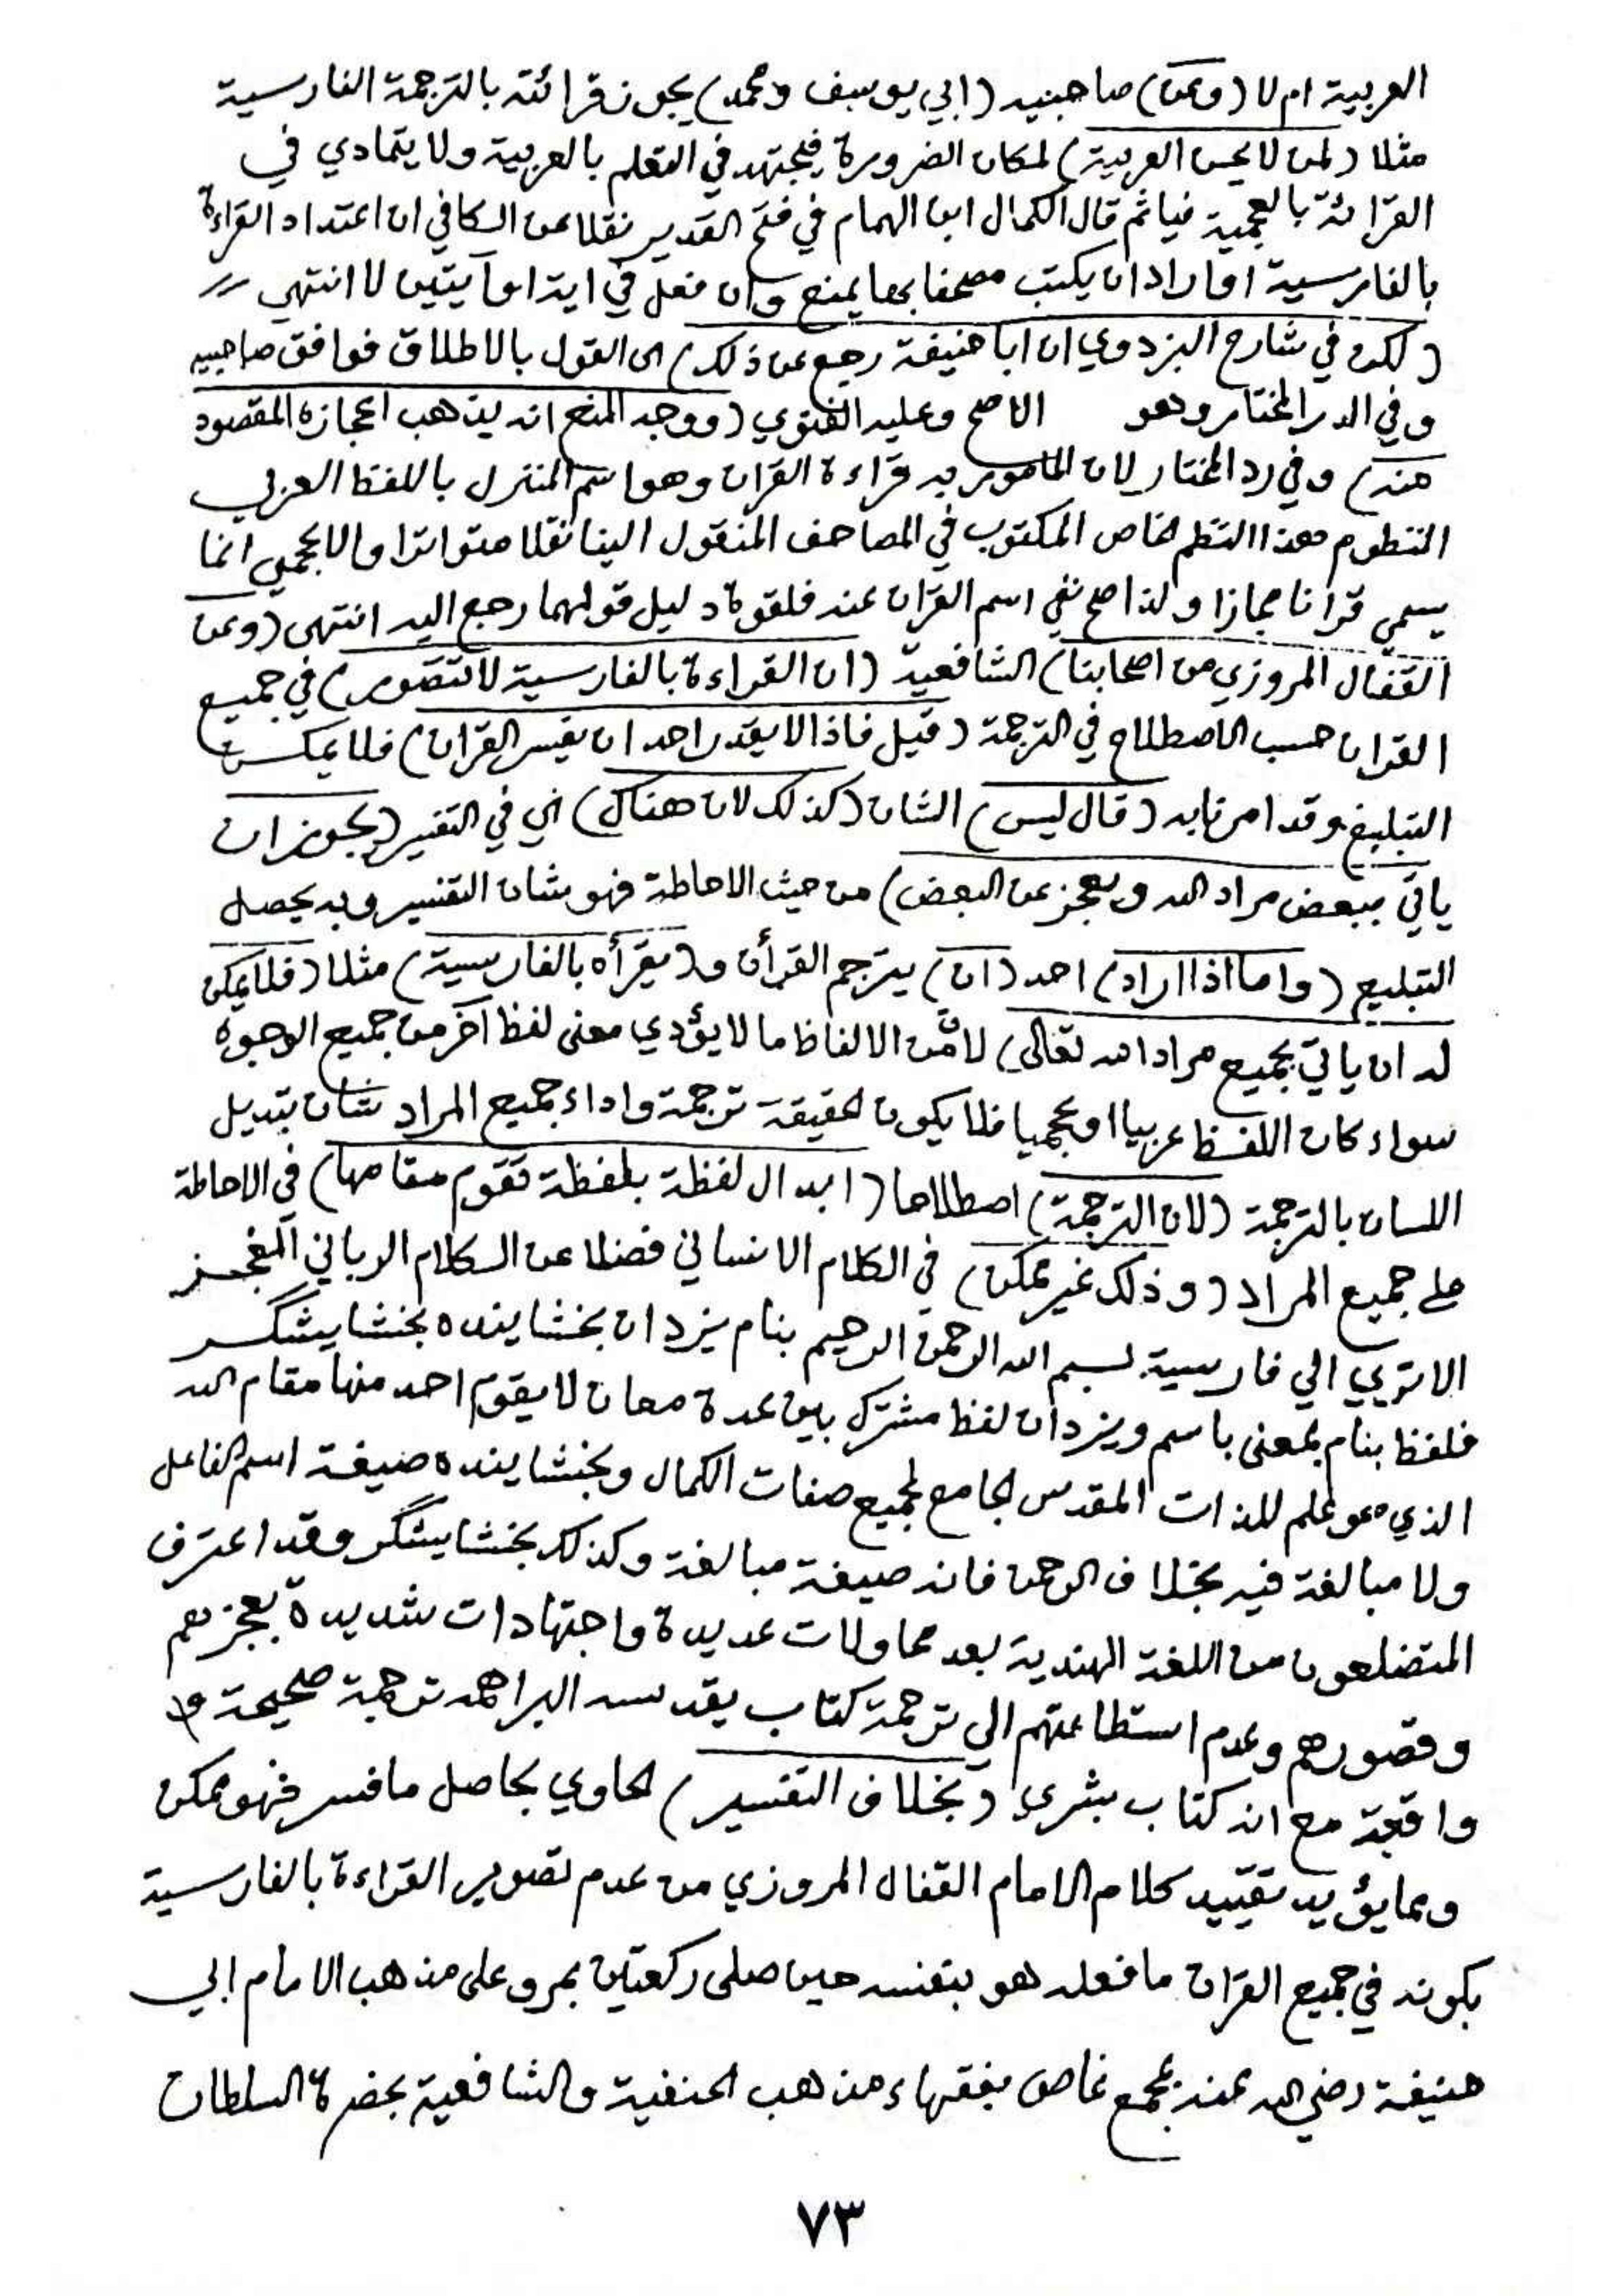 العربية ام لا (وعن) صاحبيه (ابي يوسف ومحمد) يجوز قرائته بالترجمة الفارسية
مثلا (لمن لا يحسن العربية) لمكان الضرورة فيجتهد في التعلم بالعربية ولا يتمادي في
القرائة بالعجمية فيأثم قال الكمال ابن الهمام في فتح القدير نقلا عن الكافي ان اعتاد القراءة
بالفارسية او اراد ان يكتب مصحفا بها يمنع وان فعل في اية او آيتين لا انتهي
(لكن في شارح البزدوي ان ابا حنيفة رجع عن ذلك) الى القول بالاطلاق فوافق صاحبيه
وفي الدر المختار وهو الاصح وعليه الفتوي (ووجه المنع انه يذهب اعجازه المقصود
منه) وفي رد المختار لان المامور به قراءة القران وهو اسم المنزل باللفظ العربي
المنظوم هذا النظم الخاص المكتوب في المصاحف المنقول الينا نقلا متواترا والاعجمي انما
يسمي قرانا مجازا ولذا صح نفي اسم القران عنه فلقوة دليل قولهما رجع اليه انتهى (وعن
القفال المروزي من اصحابنا) الشافعية (ان القراءة بالفارسية لا تتصور) في جميع
القران حسب الاصطلاح في الترجمة (قيل فاذا لا يقدر احد ان يفسر القران) فلا يمكن
التبليغ وقد امرنا به (قال ليس) الشان (كذلك لان هناك) اي في التفسير (يجوز ان
ياتي ببعض مراد الله ويعجز عن البعض) من حيث الاحاطة فهو شان التفسير وبه يحصل
التبليغ (واما اذا اراد) احد (ان) يترجم القرأن و(يقرأه بالفارسية) مثلا (فلا يمكن
له ان ياتي بجميع مراد الله تعالى) لان من الالفاظ ما لا يؤدي معنى لفظ آخر من جميع الوجوه
سواء كان اللفظ عربيا او عجميا فلا يكون لحقيقة ترجمة واداء جميع المراد شان تبديل
اللسان بالترجمة (لان الترجمة) اصطلاحا (ابدال لفظة بلفظة تقوم مقامها) في الاحاطة
على جميع المراد (وذلك غير ممكن) في الكلام الانساني فضلا عن الكلام الرباني المعجز
الا تري الي فارسية بسم الله الرحمن الرحيم بنام يزدان بخشاينده بخشايشگر
فلفظ بنام بمعنى باسم ويزدان لفظ مشترك بين عدة معان لا يقوم احد منها مقام الله
الذي هو علم للذات المقدس الجامع لجميع صفات الكمال وبخشاينده صيغة اسم الفاعل
ولا مبالغة فيه بخلاف الرحمن فانه صيغة مبالغة وكذلك بخشايشگر وقد اعترف
المتضلعون من اللغة الهندية بعد محاولات عديدة واجتهادات شديدة بعجزهم
وقصورهم وعدم استطاعتهم الي ترجمة كتاب يقدسه البراهمه ترجمة صحيحة
واقعة مع انه كتاب بشري (بخلاف التفسير) الحاوي بحاصل ما فسر فهو ممكن
ومما يؤيد تقييد كلام الامام القفال المروزي من عدم تصوير القراءة بالفارسية
بكونه في جميع القران ما فعله هو بنفسه حين صلى ركعتين بمرو على مذهب الامام ابي
حنيفة رضي الله عنه بمجمع غاص بفقهاء مذهب الحنفية والشافعية بحضرة السلطان
٧٣